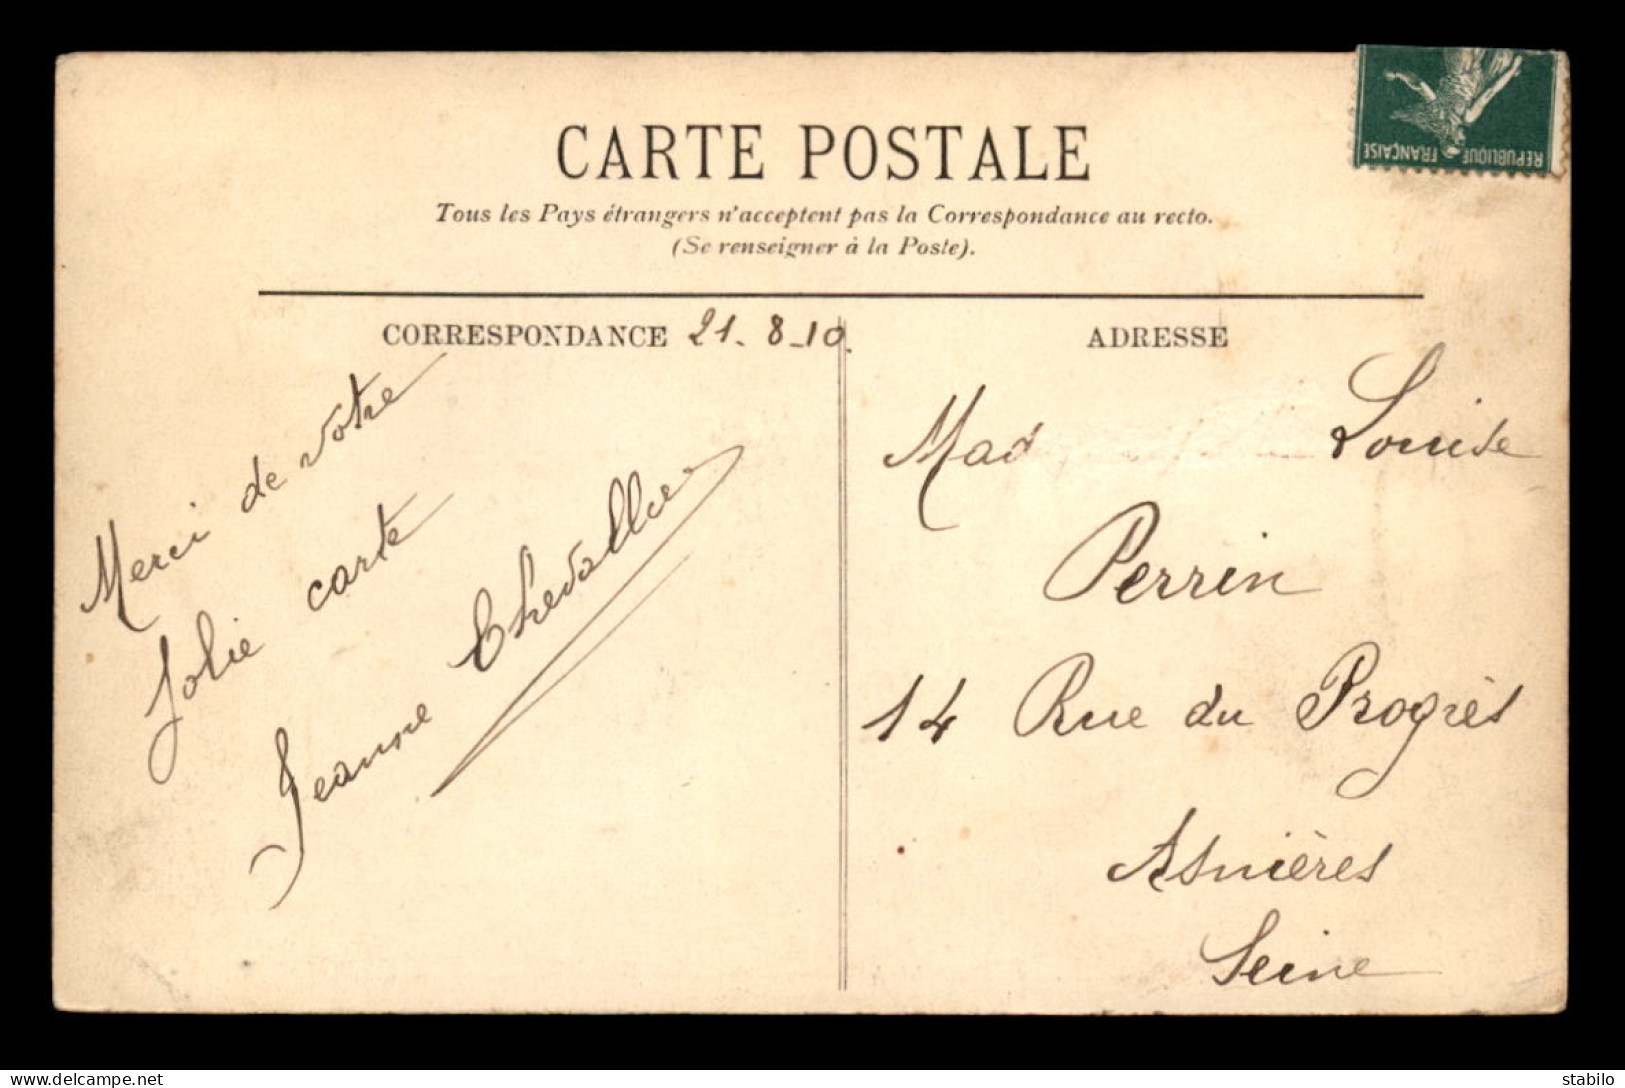 CARTE POSTALE
Tous les Pays étrangers n'acceptent pas la Correspondance au recto.
(Se renseigner à la Poste).
REPUBLIQUE FRANÇAISE
CORRESPONDANCE 21-8-10.
Merci de votre
Jolie carte
Jeanne Chevallier
ADRESSE
Mad Louise
Perrin
14 Rue du Progrès
Asnières
Seine
www.delcampe.net
stabilo